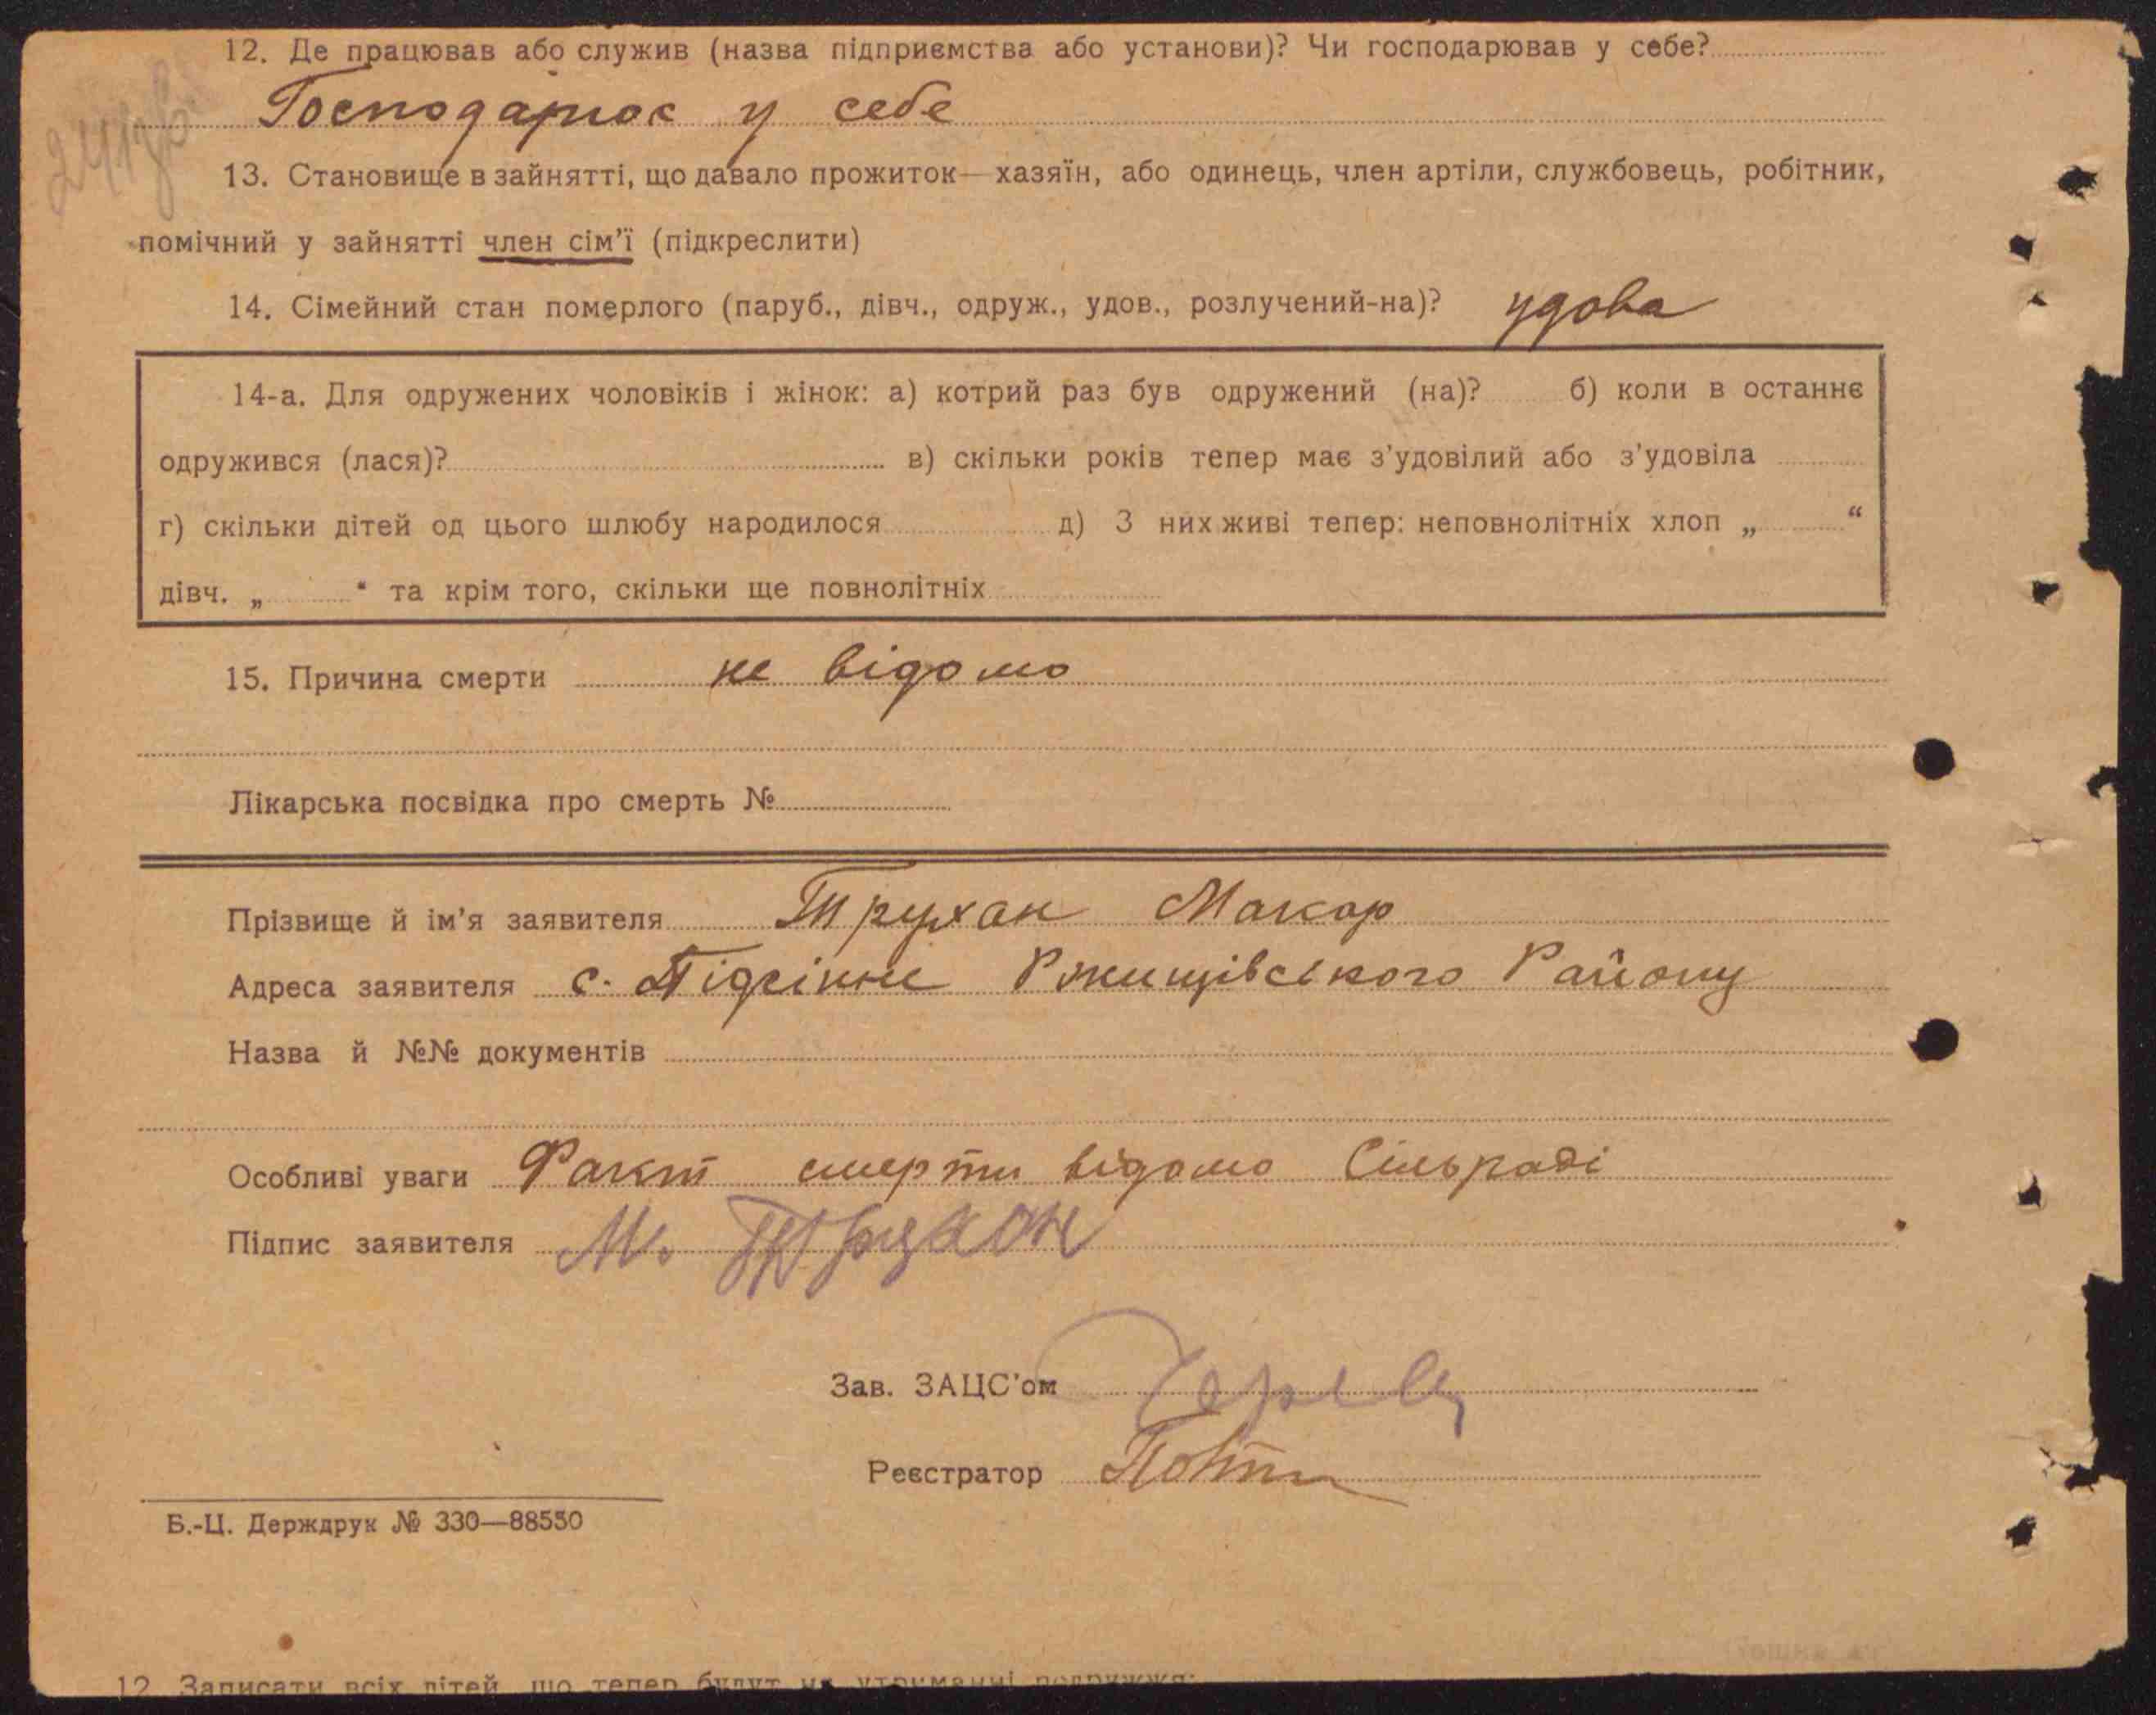 12. Де працював або служив (назва підприємства або установи)? Чи господарював у себе?
у себе
13. Становище в зайнятті, що давало прожиток—хазяїн, або одинець, член артіли, службовець, робітник,
помічний у зайнятті член сім’ї (підкреслити)
14. Сімейний стан померлого (паруб., дівч., одруж., удов., розлучений-на)? удова
14-а. Для одружених чоловіків і жінок: а) котрий раз був одружений (на)? б) коли в останнє
одружився (лася)? в) скільки років тепер має з’удовілий або з’удовіла
г) скільки дітей од цього шлюбу народилося д) З них живі тепер: неповнолітніх хлоп „ “
дівч. „ “ та крім того, скільки ще повнолітніх
15. Причина смерти не відомо
Лікарська посвідка про смерть №
Прізвище й ім’я заявителя Трухан Макар
Адреса заявителя с. Підсінне Ржищівського Району
Назва й №№ документів
Особливі уваги Факт смерти відомо Сільраді
Підпис заявителя М. Трухан
Зав. ЗАЦС’ом
Реєстратор
Б.-Ц. Держдрук № 330—88550
12 Записати всіх дітей, що тепер будут на утриманні подружжя: